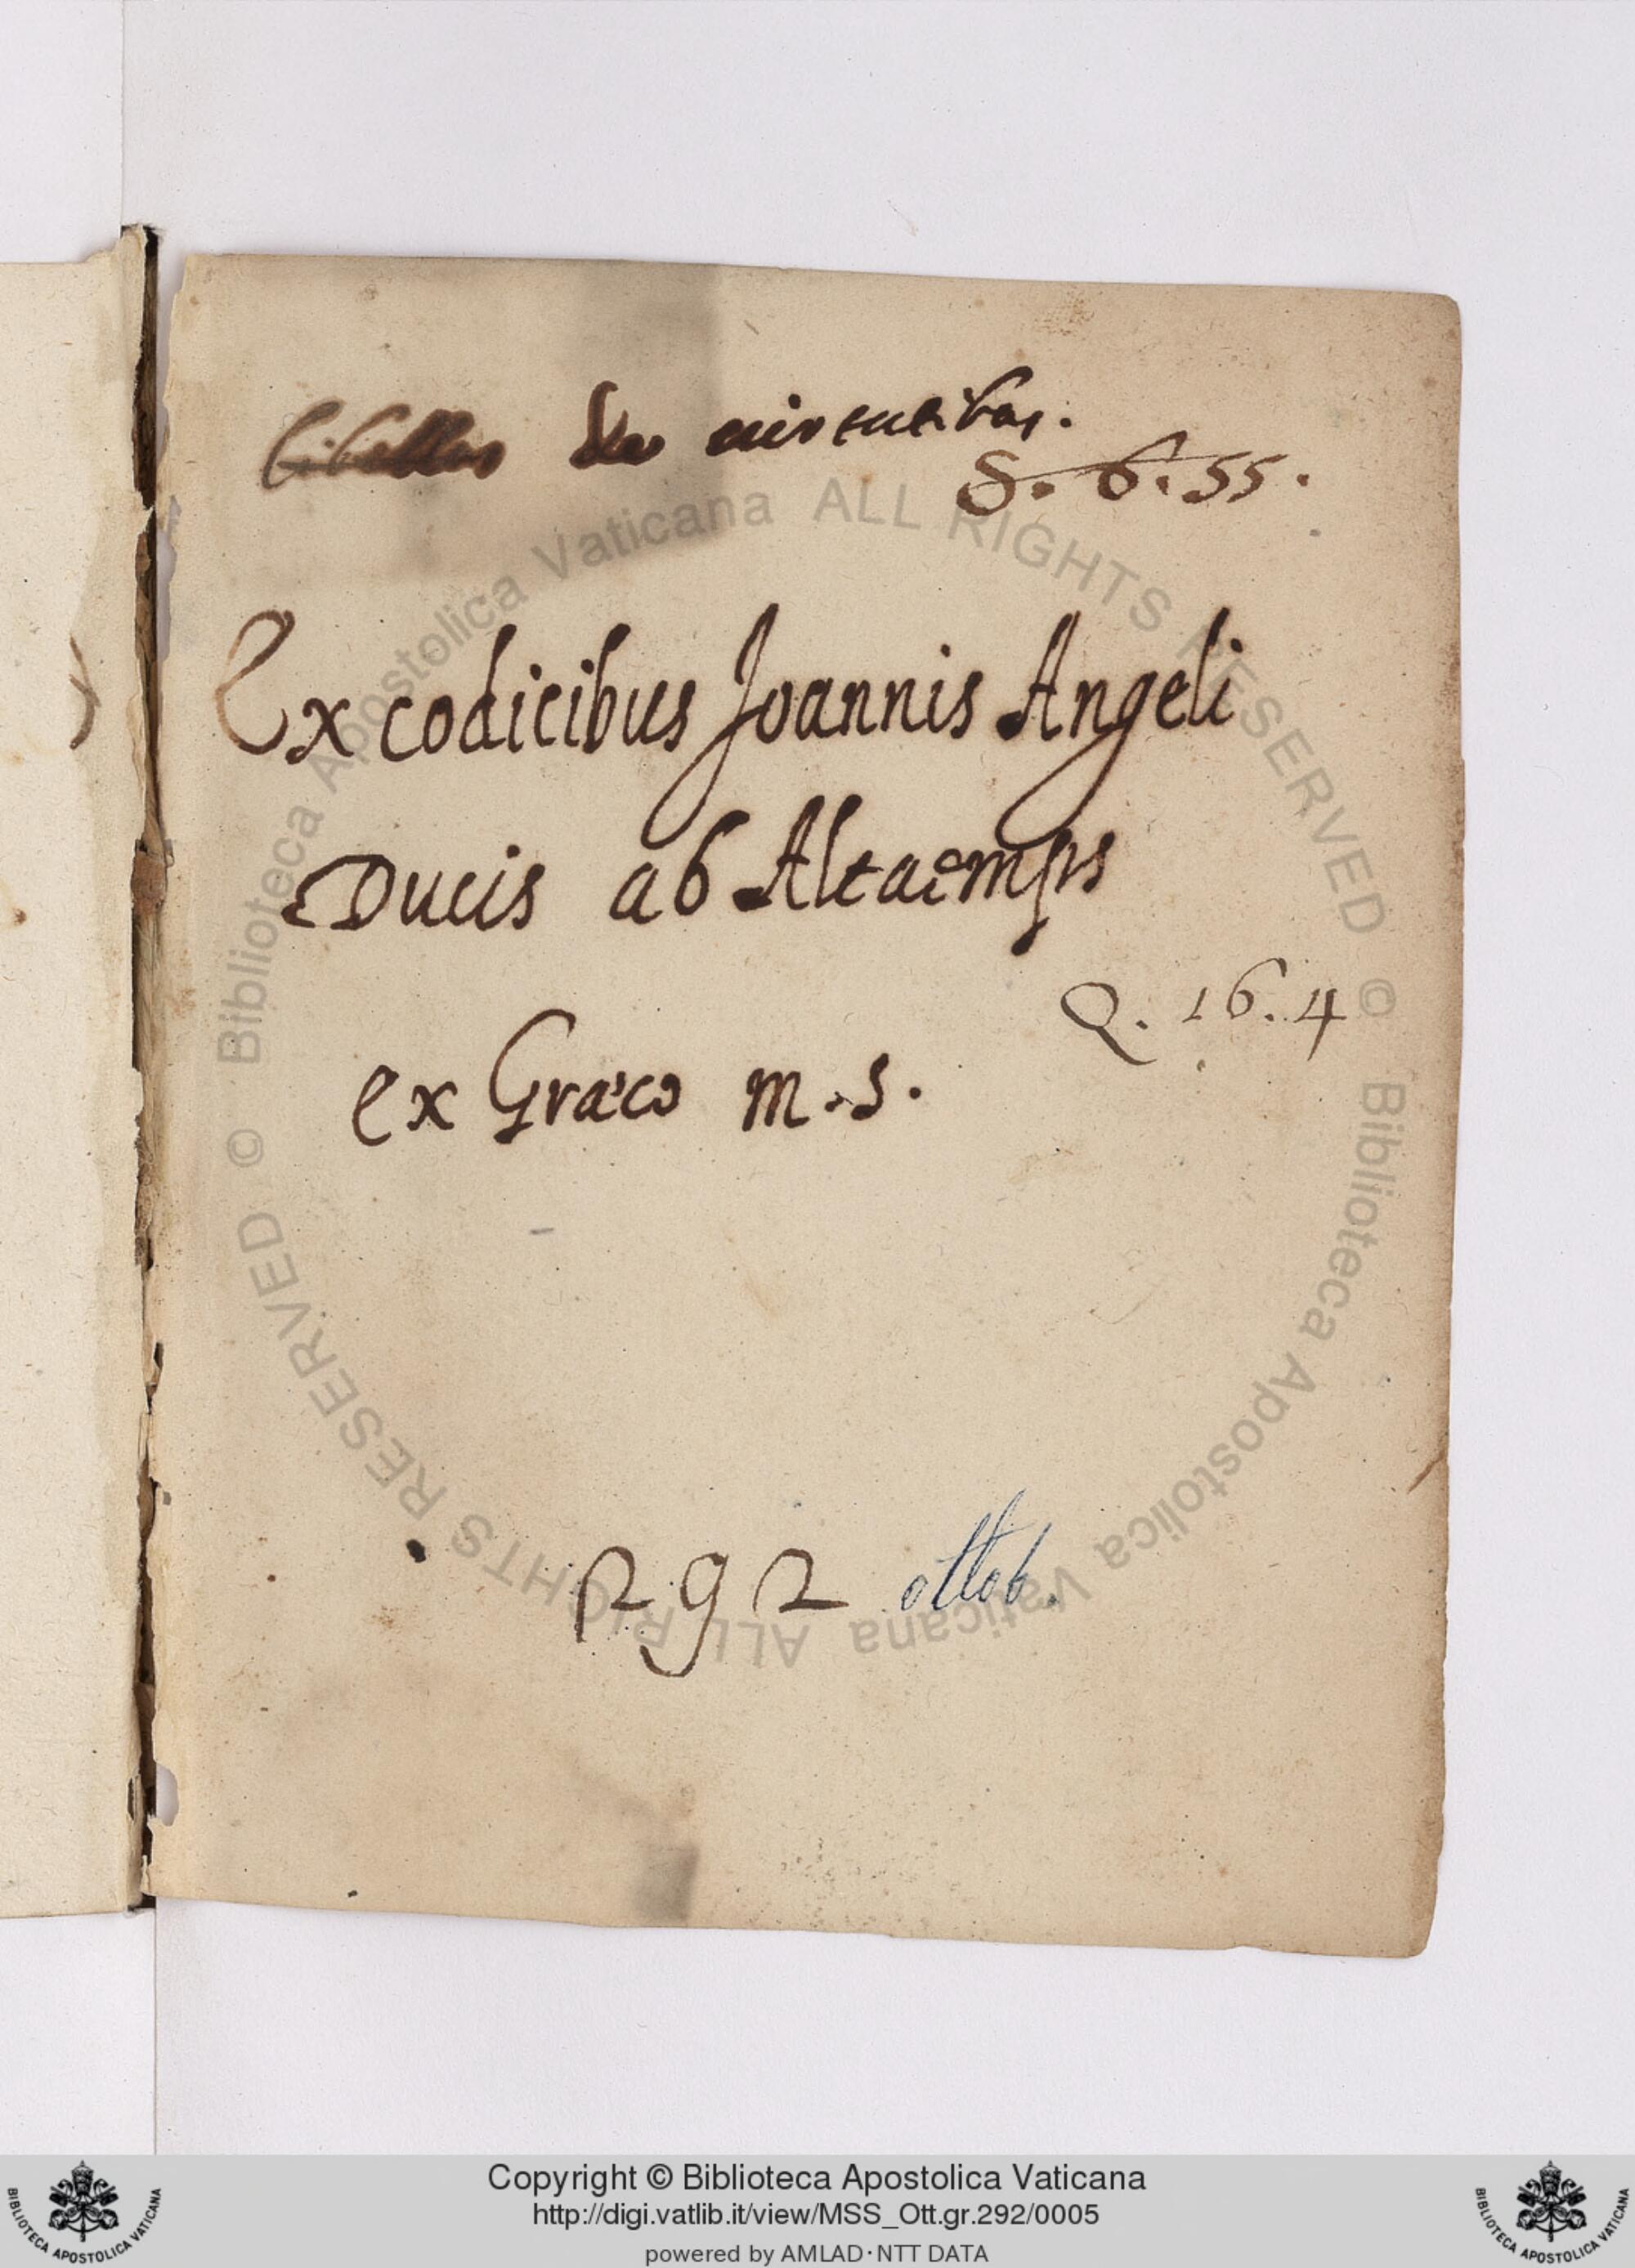 libellus de uirtutibus.
S. 6. 55.
Ex codicibus Joannis Angeli
Ducis ab Altaemps
Q. 16. 4
ex Græco m.s.
292 ottob.
© Biblioteca Apostolica Vaticana ALL RIGHTS RESERVED © Biblioteca Apostolica Vaticana ALL RIGHTS RESERVED
Copyright © Biblioteca Apostolica Vaticana
http://digi.vatlib.it/view/MSS_Ott.gr.292/0005
powered by AMLAD·NTT DATA
BIBLIOTECA APOSTOLICA VATICANA
BIBLIOTECA APOSTOLICA VATICANA